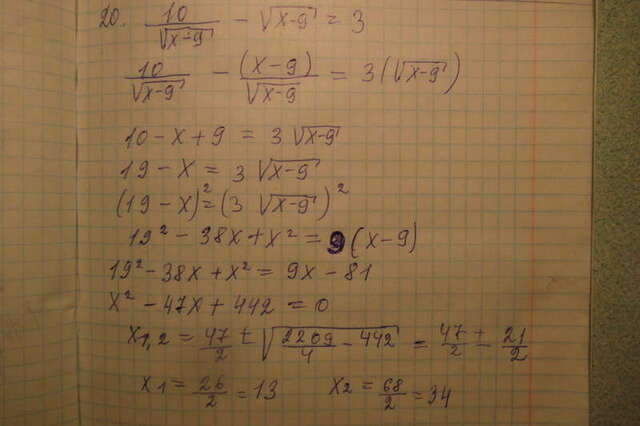 20. 10/√(x-9) - √(x-9) = 3
10/√(x-9) - (x-9)/√(x-9) = 3(√(x-9))
10 - x + 9 = 3√(x-9)
19 - x = 3√(x-9)
(19 - x)² = (3√(x-9))²
19² - 38x + x² = 9(x-9)
19² - 38x + x² = 9x - 81
x² - 47x + 442 = 0
x₁,₂ = 47/2 ± √(2209/4 - 442) = 47/2 ± 21/2
x₁ = 26/2 = 13 x₂ = 68/2 = 34